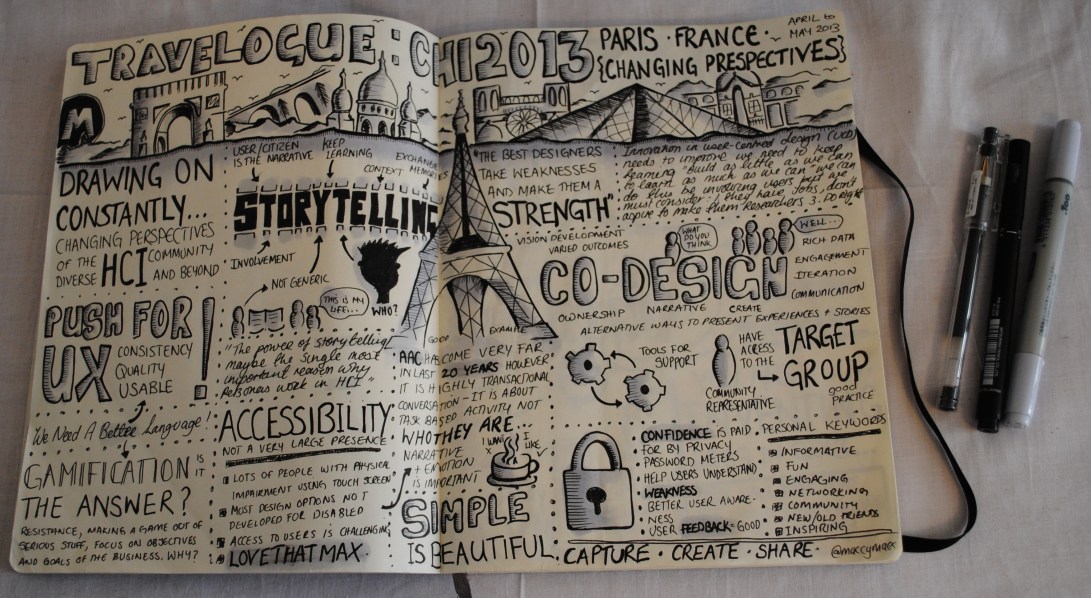 TRAVELOGUE: CHI2013
PARIS · FRANCE ·
{CHANGING PRESPECTIVES}
APRIL to
MAY 2013
M
DRAWING ON
CONSTANTLY...
CHANGING PERSPECTIVES
OF THE
DIVERSE HCI COMMUNITY
AND BEYOND
PUSH FOR
UX !
CONSISTENCY
QUALITY
USABLE
We Need A Better Language!
GAMIFICATION IS IT
THE ANSWER?
RESISTANCE, MAKING A GAME OUT OF
SERIOUS STUFF, FOCUS ON OBJECTIVES
AND GOALS OF THE BUSINESS. WHY?
USER/CITIZEN
IS THE NARRATIVE
KEEP
LEARNING
CONTEXT
STORYTELLING
INVOLVEMENT
NOT GENERIC
THIS IS MY
LIFE...
WHO?
"The power of storytelling
maybe the single most
important reason why
Personas work in HCI"
ACCESSIBILITY
NOT A VERY LARGE PRESENCE
LOTS OF PEOPLE WITH PHYSICAL
IMPAIRMENT USING TOUCH SCREEN
MOST DESIGN OPTIONS NOT
DEVELOPED FOR DISABLED
ACCESS TO USERS IS CHALLENGING
LOVETHATMAX
GOOD EXAMPLE
AAC HAS COME VERY FAR
IN LAST 20 YEARS HOWEVER
IT IS HIGHLY TRANSACTIONAL
CONVERSATION - IT IS ABOUT
TASK BASED ACTIVITY NOT
WHO THEY ARE...
NARRATIVE
+ EMOTION
IS IMPORTANT
I WANT
X
I
LIKE
✓
SIMPLE
IS BEAUTIFUL.
THE BEST DESIGNERS
TAKE WEAKNESSES
AND MAKE THEM A
STRENGTH"
Innovation in user-centred design (UCD)
needs to improve we need to keep
learning "build as little as we can
to learn as much as we can" we can
do this by involving users but we
must consider: they have jobs, don't
aspire to make them Researchers 3. Do Right
VISION DEVELOPMENT
VARIED OUTCOMES
WHAT
DO YOU
THINK
WELL...
RICH DATA
CO-DESIGN
ENGAGEMENT
ITERATION
COMMUNICATION
OWNERSHIP NARRATIVE CREATE
ALTERNATIVE WAYS TO PRESENT EXPERIENCES + STORIES
TOOLS FOR
SUPPORT
COMMUNITY
REPRESENTATIVE
HAVE
ACCESS
TO THE
TARGET
GROUP
good
PRACTICE
CONFIDENCE IS PAID
FOR BY PRIVACY
PASSWORD METERS
HELP USERS UNDERSTAND
WEAKNESS
BETTER USER AWARE-
NESS
USER FEEDBACK = GOOD
PERSONAL KEYWORDS
INFORMATIVE
FUN
ENGAGING
NETWORKING
COMMUNITY
NEW/OLD FRIENDS
INSPIRING
CAPTURE · CREATE · SHARE ·
@maccymacx